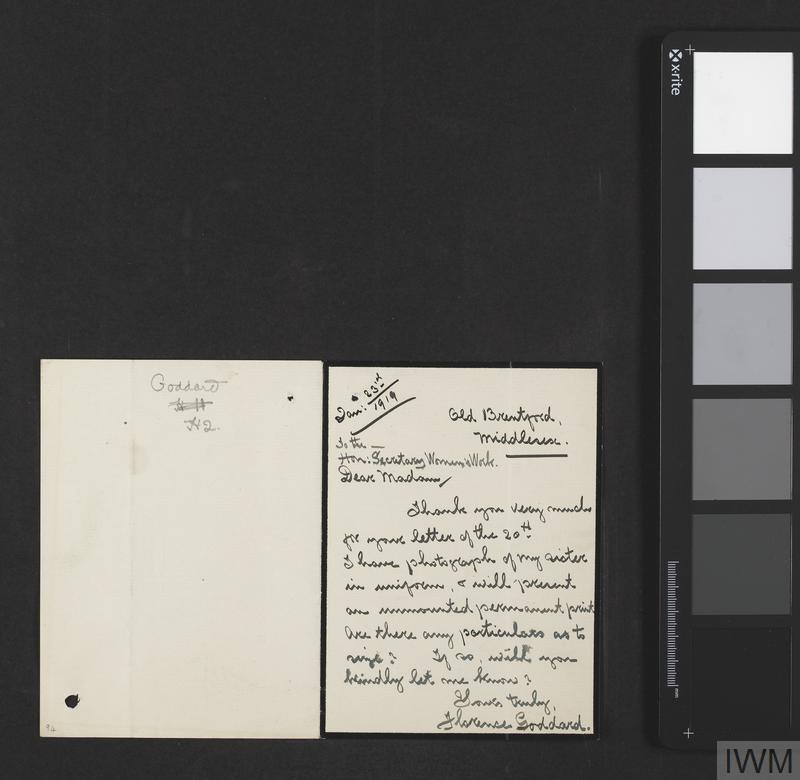 Goddard
H2.
94
Jan: 23rd
1919
Old Brentford,
Middlesex.
To the —
Hon: Secretary Women's Work.
Dear Madam,
Thank you very much
for your letter of the 20th
I have photograph of my sister
in uniform, & will present
an unmounted permanent print
Are there any particulars as to
size? If so, will you
kindly let me know?
Yours truly,
Florence Goddard.
x-rite
mm
IWM